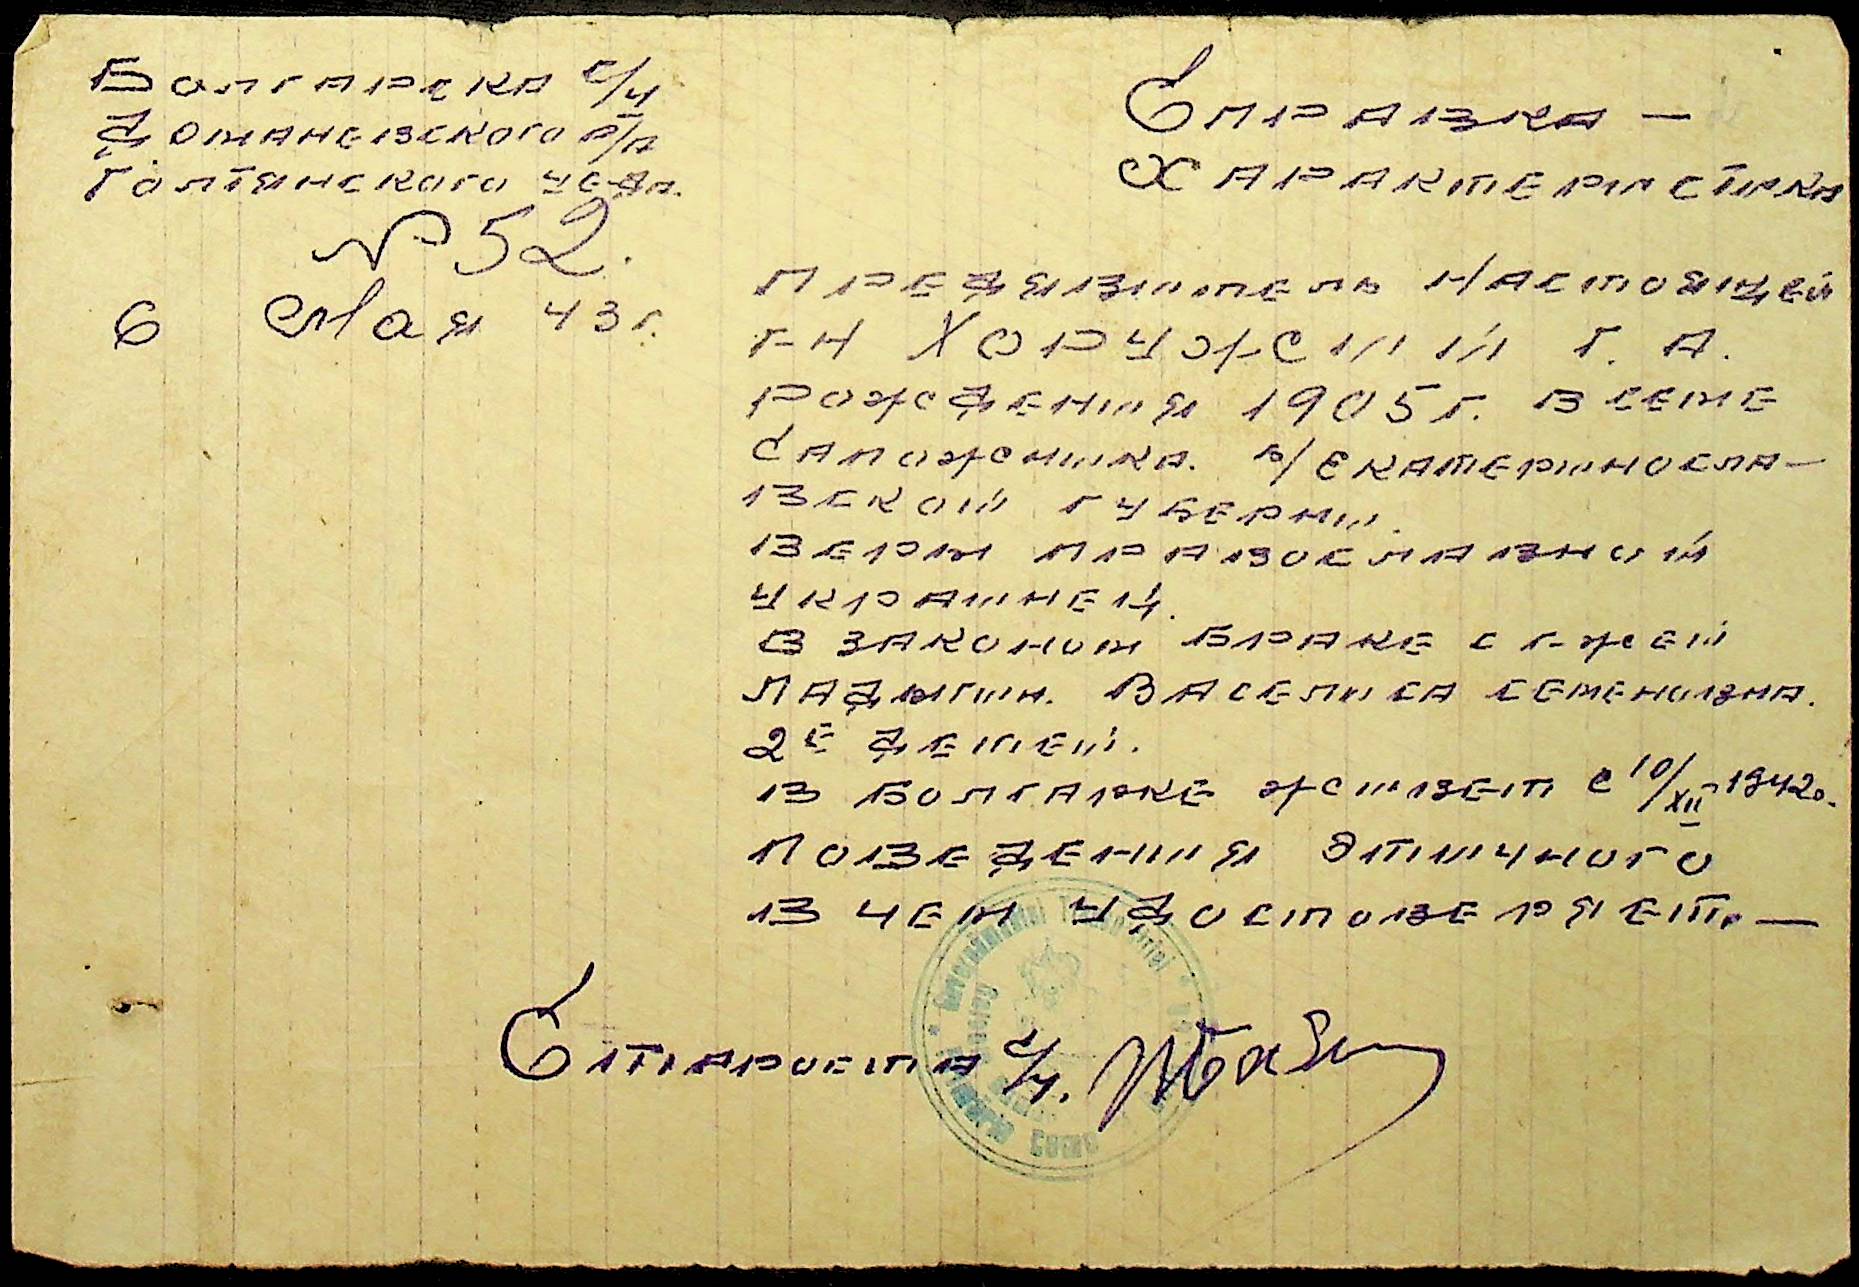 Болгарска с/у
Доманевского р/а
Голтянского уезда.
№ 52.
6 Мая 43 г.
Справка —
Характеристика
Предявитель настоящей
г-н Хоружсий Г. А.
рождения 1905 г. в семе
сапожника. б/Екатериносла-
вской губерни.
веры православной
украинец.
В законом браке с г-жей
Ладыгин. Васелиса Семеновна.
2е детей.
в Болгарке живет с 10/XII-1942г.
Поведения отличного
в чем удостоверяет. —
Guvernământul Transnistriei
Староста с/у.